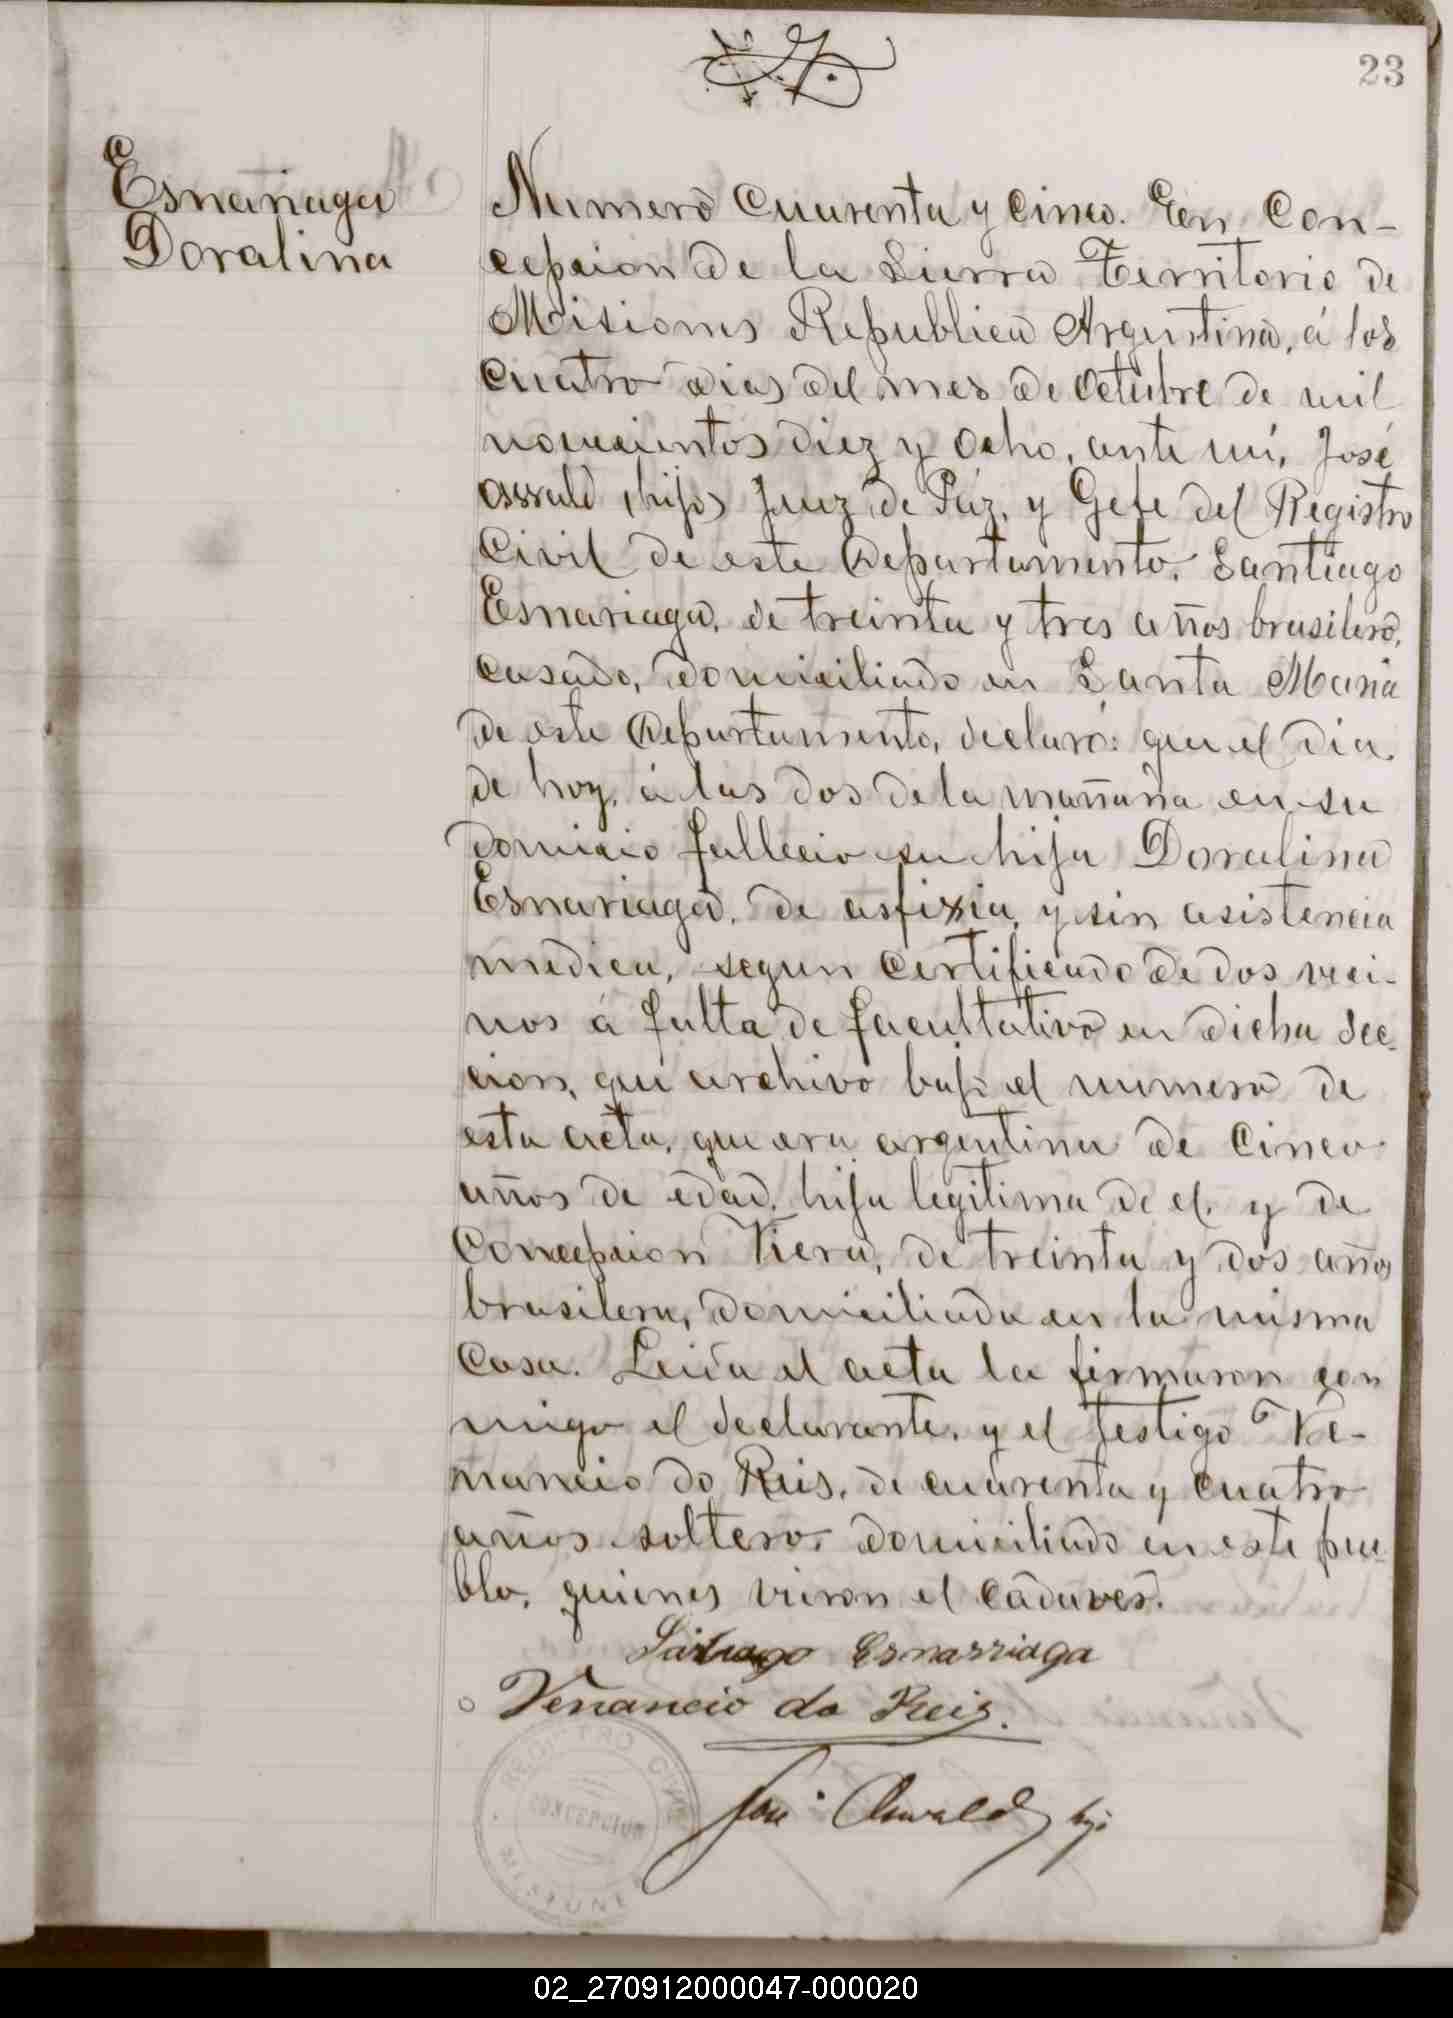 23
Esnariaga
Doralina
Numero Cuarenta y Cinco. En Con-
cepcion de la Sierra Territorio de
Misiones Republica Argentina, á los
cuatro dias del mes de Octubre de mil
novecientos diez y ocho, ante mi, José
Osvald (hijo) Juez de Páz, y Gefe del Registro
Civil de este Departamento, Santiago
Esnariaga, de treinta y tres años brasilero,
casado, domiciliado en Santa Maria
de este Departamento, declaró: que el dia
de hoy, á las dos de la mañana en su
domicio fallecio su hija Doralina
Esnariaga, de asfixia, y sin asistencia
medica, segun certificado de dos veci-
nos á falta de facultativo en dicha sec-
cion, que archivo bajo el numero de
esta acta, que era argentina de cinco
años de edad, hija legitima de el, y de
Concepcion Viera, de treinta y dos años
brasilera, domiciliada en la misma
casa. Leida el acta la firmaron con
migo el declarante, y el testigo Ve-
nancio do Reis, de cuarenta y cuatro
años soltero, domiciliado en este pue-
blo, quienes vieron el cadaver.
Santiago Esnarriaga
Venancio do Reis.
José Oswald hijo
REGISTRO CIVIL
02_270912000047-000020